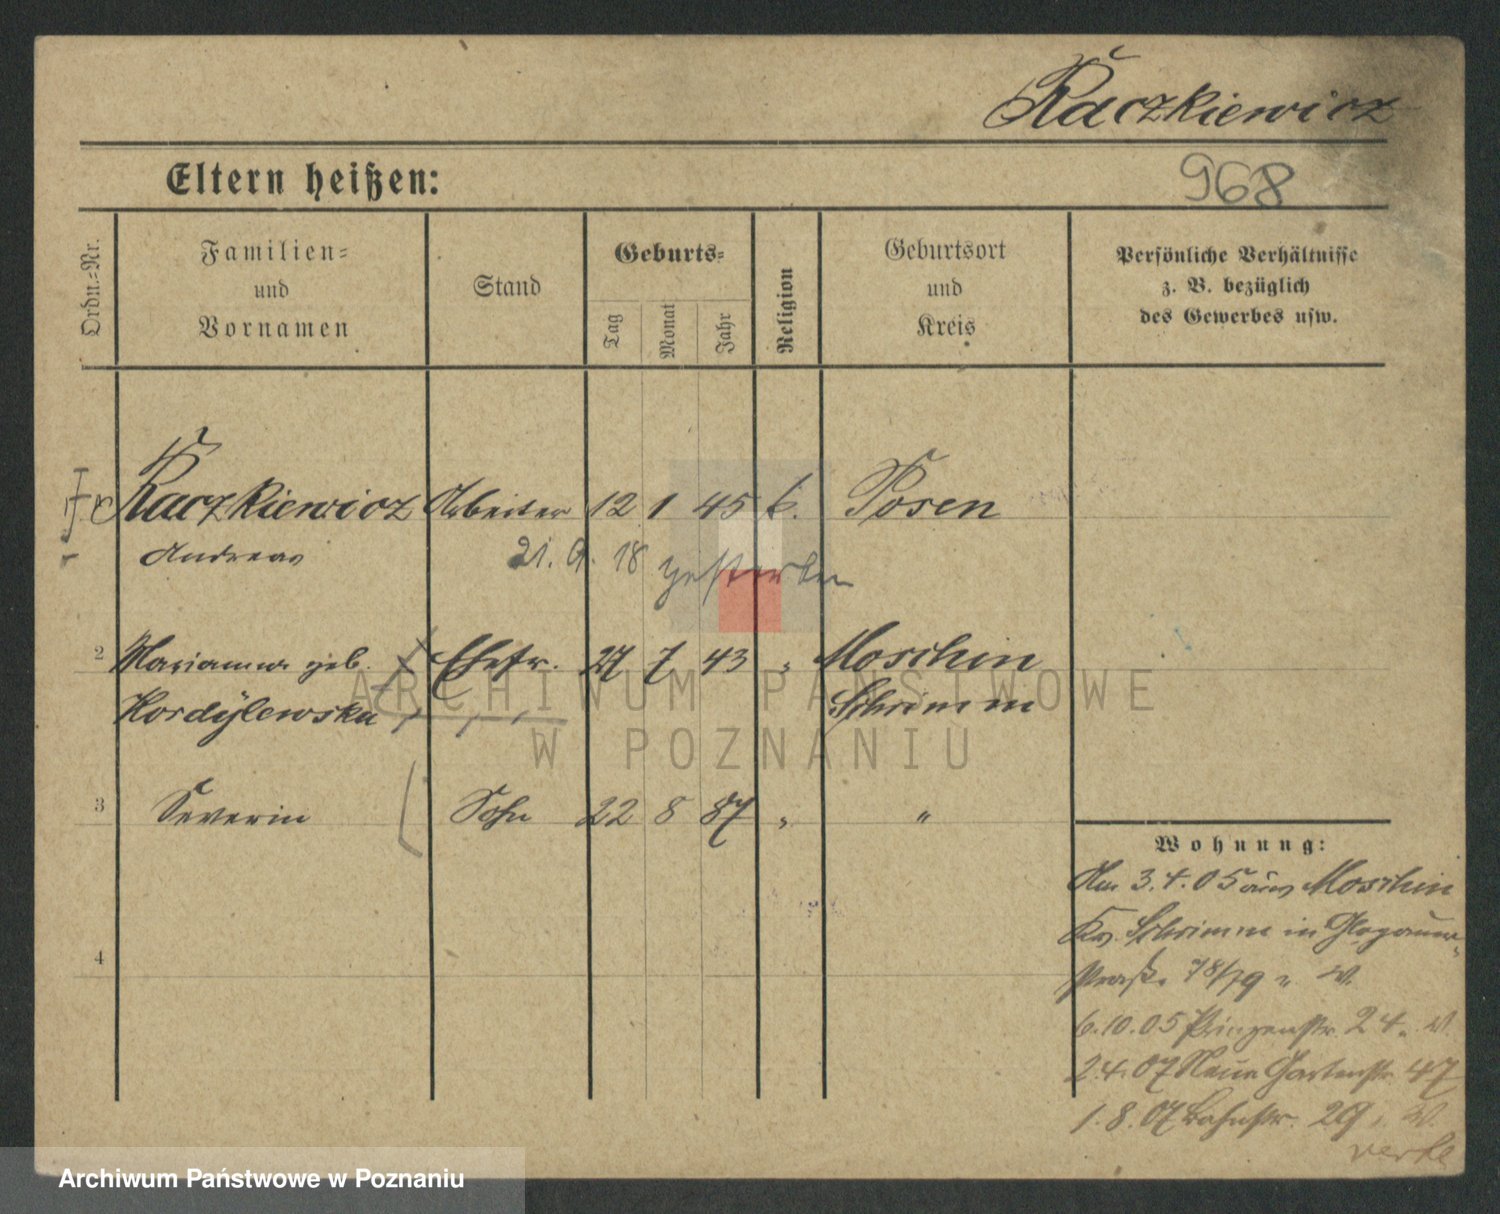 Raczkiewicz
Eltern heißen:
968
Ordn.=Nr.
Familien=
und
Vornamen
Stand
Geburts=
Tag
Monat
Jahr
Religion
Geburtsort
und
Kreis
Persönliche Verhältnisse
z. B. bezüglich
des Gewerbes usw.
Raczkiewicz Arbeiter 12 1 45 k. Posen
Andreas 21. 9. 18 gestorben
2 Marianna geb. Ehefr. 27 7 43 " Moschin
Kordÿlewska Schrimm
3 Severin Sohn 22 8 87 " "
4
Wohnung:
Am 3.4.05 aus Moschin
Kr. Schrimm in Glogauer-
straße 78/79
6.10.05 Prinzenstr. 24
2.4.07 Neue Gartenstr. 47
1.8.07 Bahnstr. 29
ARCHIWUM PAŃSTWOWE
W POZNANIU
Archiwum Państwowe w Poznaniu